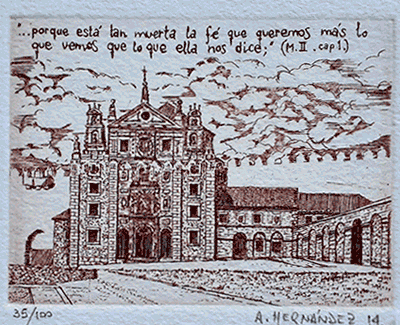 "...porque está tan muerta la fé que queremos más lo
que vemos que lo que ella nos dice," (M.II. cap1.)
35/100
A. HERNANDEZ 14